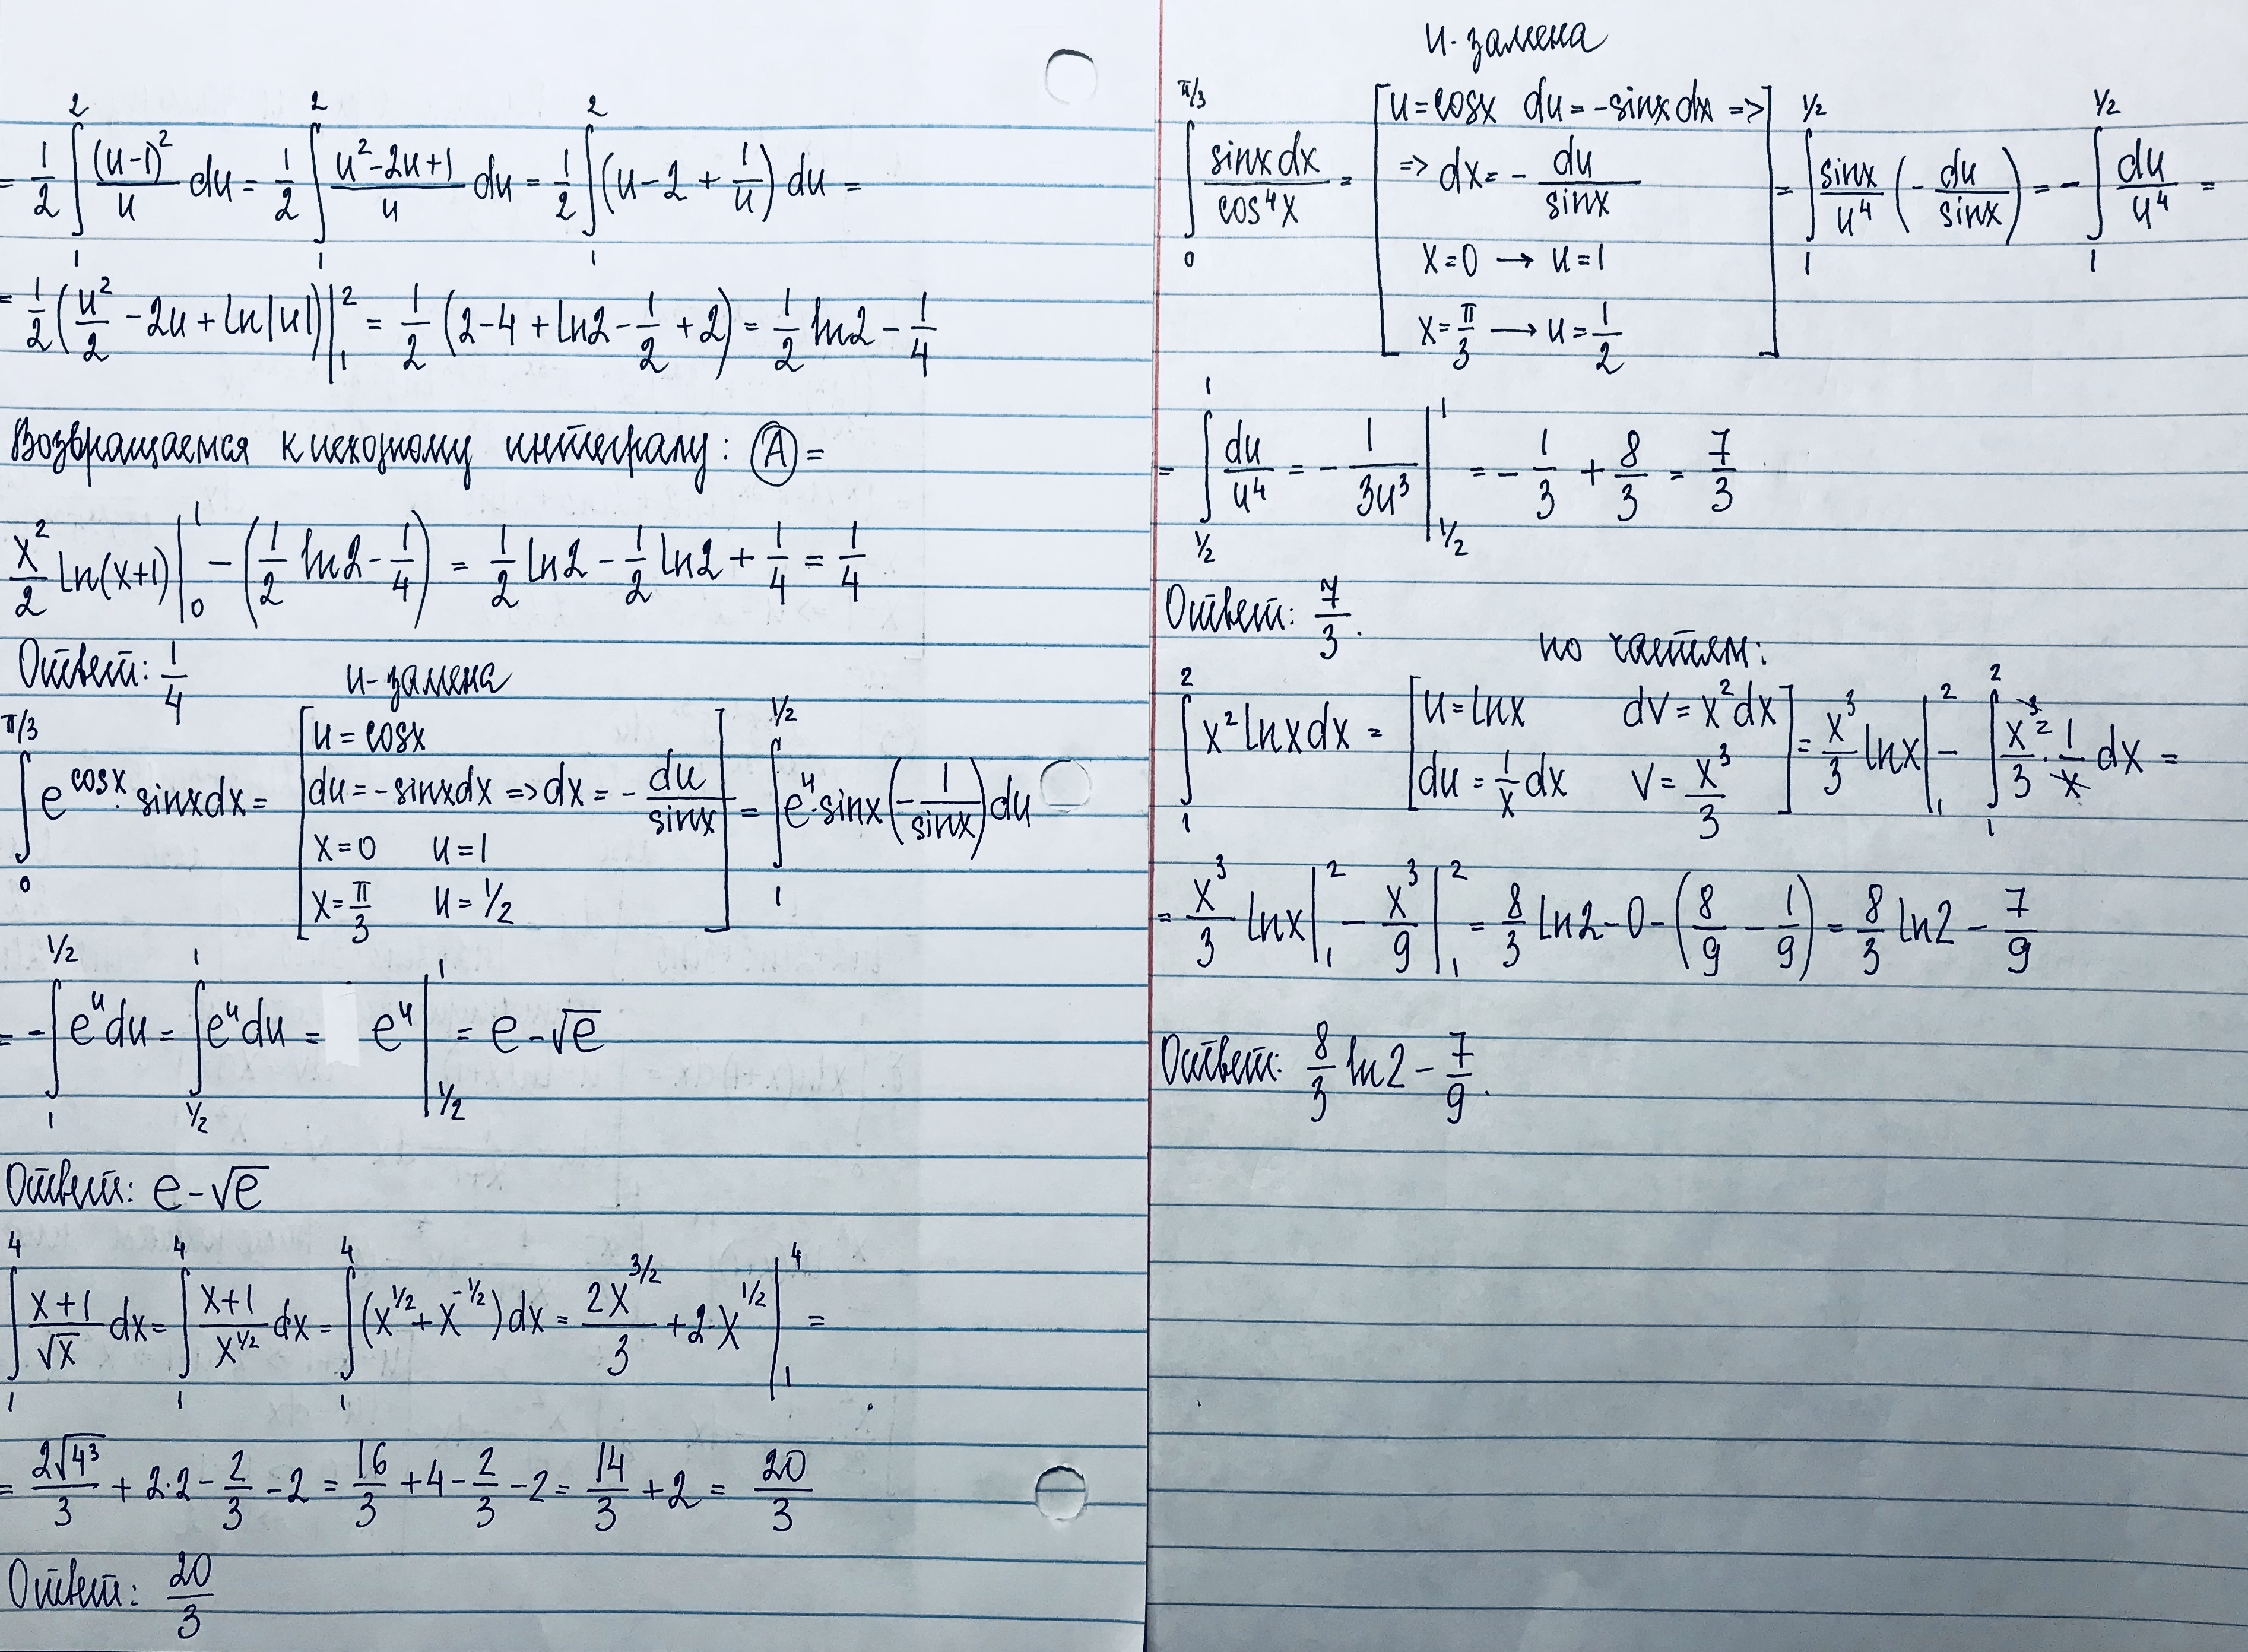 = 1/2 ∫₁² (u-1)²/u du = 1/2 ∫₁² (u²-2u+1)/u du = 1/2 ∫₁² (u-2+1/u) du =
= 1/2 (u²/2 - 2u + ln|u|) |₁² = 1/2 (2-4+ln2-1/2+2) = 1/2 ln2 - 1/4
Возвращаемся к исходному интегралу: Ⓐ =
x²/2 ln(x+1) |₀¹ - (1/2 ln2 - 1/4) = 1/2 ln2 - 1/2 ln2 + 1/4 = 1/4
Ответ: 1/4
u-замена
∫₀^(π/3) e^(cosx) · sinxdx = [u=cosx
du=-sinxdx => dx = - du/sinx
x=0 u=1
x=π/3 u=1/2] = ∫₁^(1/2) e^u · sinx (- 1/sinx) du
= - ∫₁^(1/2) e^u du = ∫_(1/2)^1 e^u du = e^u |_(1/2)^1 = e - √e
Ответ: e - √e
∫₁⁴ (x+1)/√x dx = ∫₁⁴ (x+1)/x^(1/2) dx = ∫₁⁴ (x^(1/2) + x^(-1/2)) dx = 2x^(3/2)/3 + 2·x^(1/2) |₁⁴ =
= 2√4³/3 + 2·2 - 2/3 - 2 = 16/3 + 4 - 2/3 - 2 = 14/3 + 2 = 20/3
Ответ: 20/3
u-замена
∫₀^(π/3) sinxdx/cos⁴x = [u=cosx du=-sinxdx =>
=> dx = - du/sinx
x=0 → u=1
x=π/3 → u=1/2] = ∫₁^(1/2) sinx/u⁴ (- du/sinx) = - ∫₁^(1/2) du/u⁴ =
= ∫_(1/2)^1 du/u⁴ = - 1/(3u³) |_(1/2)^1 = - 1/3 + 8/3 = 7/3
Ответ: 7/3.
по частям:
∫₁² x² lnxdx = [u=lnx dv=x²dx
du=1/x dx v=x³/3] = x³/3 lnx |₁² - ∫₁² x²/3 · 1/x dx =
= x³/3 lnx |₁² - x³/9 |₁² = 8/3 ln2 - 0 - (8/9 - 1/9) = 8/3 ln2 - 7/9
Ответ: 8/3 ln2 - 7/9.